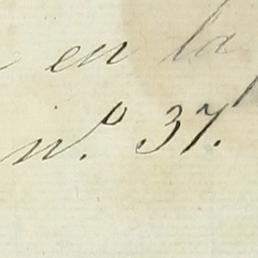 en la
n.º 37.